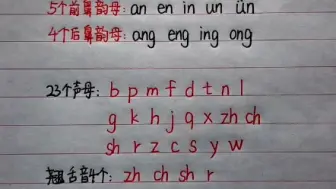 5个前鼻韵母: an en in un ün
4个后鼻韵母: ang eng ing ong
23个声母: b p m f d t n l
g k h j q x zh ch
sh r z c s y w
翘舌音4个: zh ch sh r